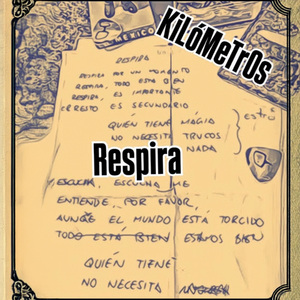 KiLóMeTrOs
MEXICO
RESPIRA
RESPIRA POR UN MOMENTO
RESPIRA, TODO ESTÁ BIEN
RESPIRA, ES IMPORTANTE
EL RESTO ES SECUNDARIO
QUIÉN TIENE MAGIA
NO NECESITA TRUCOS
NADA
Respira
ESCUCHA, ESCUCHA ME
ENTIENDE, POR FAVOR,
AUNQUE EL MUNDO ESTÁ TORCIDO
TODO ESTÁ BIEN ESTAMOS BIEN
QUIÉN TIENE
NO NECESITA